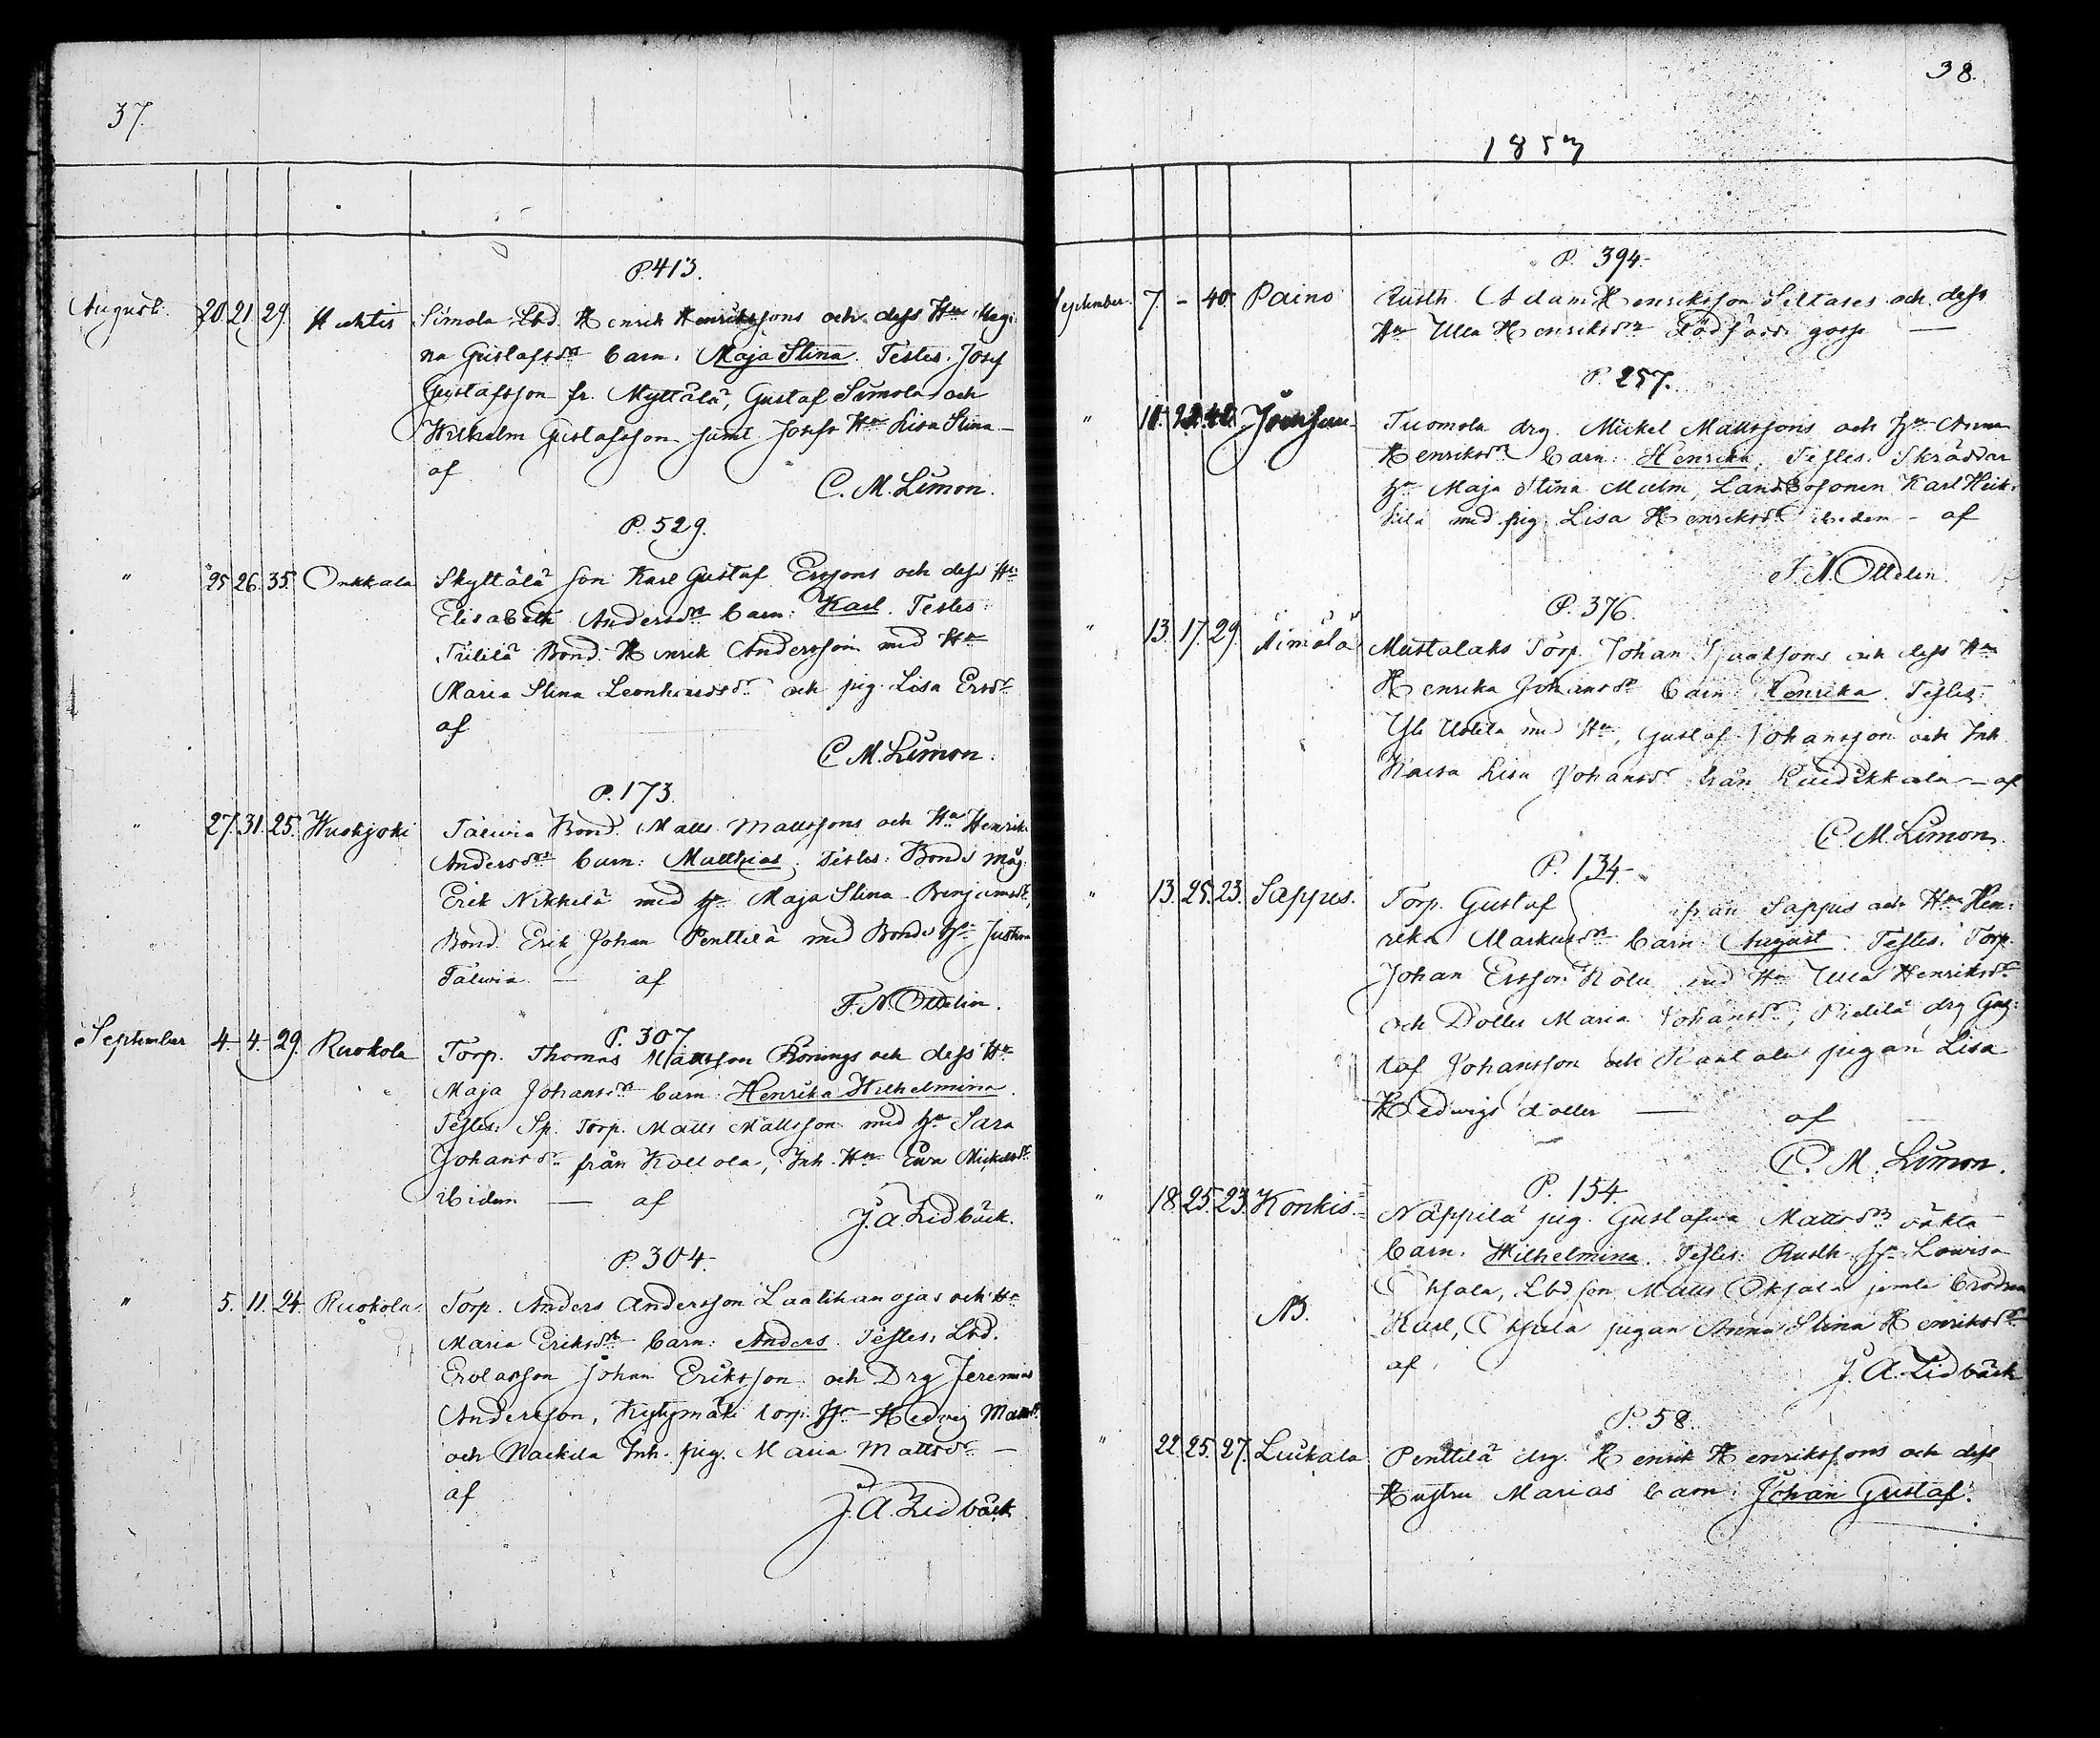 37.
P. 413.
August. 20. 21. 29. Huhtis Simola Lbd. Henrik Henrikssons och dess Hu Regi:
na Gustafsdr barn: Maja Stina. Testes: Josef
Gustafsson fr. Myttälä, Gustaf Simola och
Wilhelm Gustafsson samt Josefs Hu Lisa Stina –
af
C. M. Limon.
P. 529.
" 25. 26. 35. Onkkala Skyttälä son Karl Gustaf Erssons och dess Hu
Elisabeth Andersdr barn: Karl. Testes:
Bond. Henrik Andersson med Hu
Maria Stina Leonhardsdr och pig. Lisa Ersdr
af
C. M. Limon.
P. 173.
" 27. 31. 25. Wuohjoki Talwia Bond. Matts Mattssons och Hu Henrik:
Andersdrs barn: Matthias. Testes: Bonde måg.
Erik Nikkilä med Hu Maja Stina Benjamsdr,
Bond. Erik Johan Penttilä med Bonde Hu Justina
Talwia — af
F. N. Ottelin.
September 4. 4. 29. Ruokola P. 307.
Torp. Thomas Mattsson Rönings och dess Hu
Maja Johansdrs barn: Henrika Wilhelmina.
Testes: Sp. Torp. Matts Mattsson med Hu Sara
Johansdr från Kollola, Inh. Hu Ewa Mickelsdr
ibidem — af
J. A. Lidbäck.
P. 304.
" 5. 11. 24. Ruokola. Torp. Anders Andersson Laalikanojas och Hu
Maria Eriksdrs barn: Anders. Testes: Lbd.
Erolasson Johan Eriksson och Drg Jeremias
Andersson, Kylymäki torp. Hu Hedvig Mattsdr
och Wackila Inh. pig. Maria Mattsdr —
af
J. A. Lidbäck
38.
1857
P. 394.
September. 7. – 40. Paino Rusth. Adam Henriksson Seltares och dess
Hu Ulla Henriksdrs Dödfödde gosse —
P. 257.
" Tuomola drg. Mickel Mattssons och Hu Anna
Henriksdrs barn: Henrika. Testes: Skräddar
Hu Maja Stina Malm, Landbosonen Karl Heik:
kilä med pig. Lisa Henriksdr ibidem – af
F. N. Ottelin.
P. 376.
" 13. 17. 29. Aimälä Mustalaks Torp. Johan Isaakssons och dess Hu
Henrika Johansdr barn Henrika. Testes:
Yli Uotila med Hu, Gustaf Johansson och Inh.
Kaisa Lisa Johansdr från — af
C. M. Limon.
P. 134.
" 13. 25. 23. Sappus. Torp. Gustaf från Sappus och Hu Hen:
rika Markusdrs barn August. Testes: Torp.
Johan Ersson med Hu Ulla Henriksdr
och Dotter Maria Johansdr, drg Gus:
taf Johansson och pigan Lisa
Hedvigs dotter — af
C. M. Limon.
P. 154.
" 18. 25. 23. Konkis. Näppilä pig. Gustafwa Mattsdrs oäkta
barn: Wilhelmina. Testes: Rusth. Hu Lowisa
Ohjala, Lbd. son Matts Ohjala jemte brodren
NB. Karl, Ohjala pigan Anna Stina Henriksdr
af
J. A. Lidbäck
P. 58.
" 22. 25. 27. Luukala Penttilä drg. Henrik Henrikssons och dess
Hustru Marias barn: Johan Gustaf.